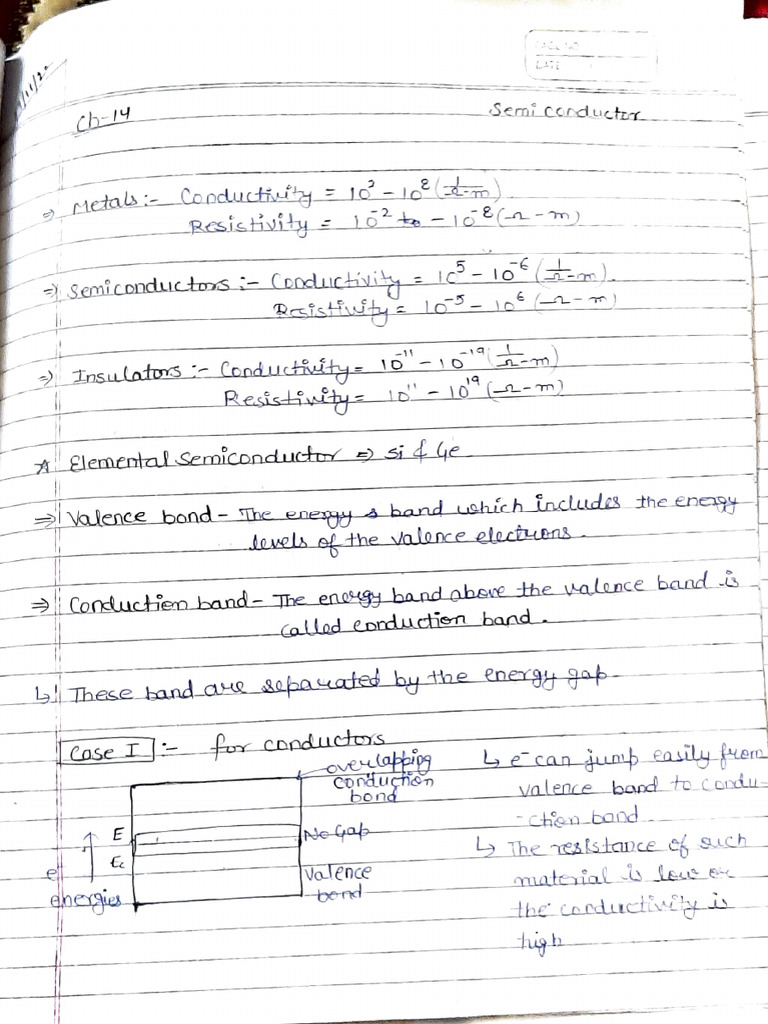 PAGE NO
DATE
Ch-14
Semi conductor
⇒ Metals :- Conductivity = 10² - 10⁸ (1/Ω-m)
Resistivity = 10⁻² to - 10⁻⁸ (Ω-m)
⇒ Semiconductors :- Conductivity = 10⁵ - 10⁻⁶ (1/Ω-m).
Resistivity = 10⁻⁵ - 10⁶ (Ω-m)
⇒ Insulators :- Conductivity = 10⁻¹¹ - 10⁻¹⁹ (1/Ω-m)
Resistivity = 10¹¹ - 10¹⁹ (Ω-m)
* Elemental Semiconductor ⇒ Si & Ge
⇒ Valence bond - The energy s band which includes the energy
levels of the valence electrons.
⇒ Conduction band - The energy band above the valence band is
called conduction band.
↳ These band are separated by the energy gap.
Case I :- for conductors
overlapping
conduction
bond
E
No Gap
Ec
Valence
bond
e⁻
energies
↳ e⁻ can jump easily from
valence band to condu-
-ction band
↳ The resistance of such
material is low or
the conductivity is
high